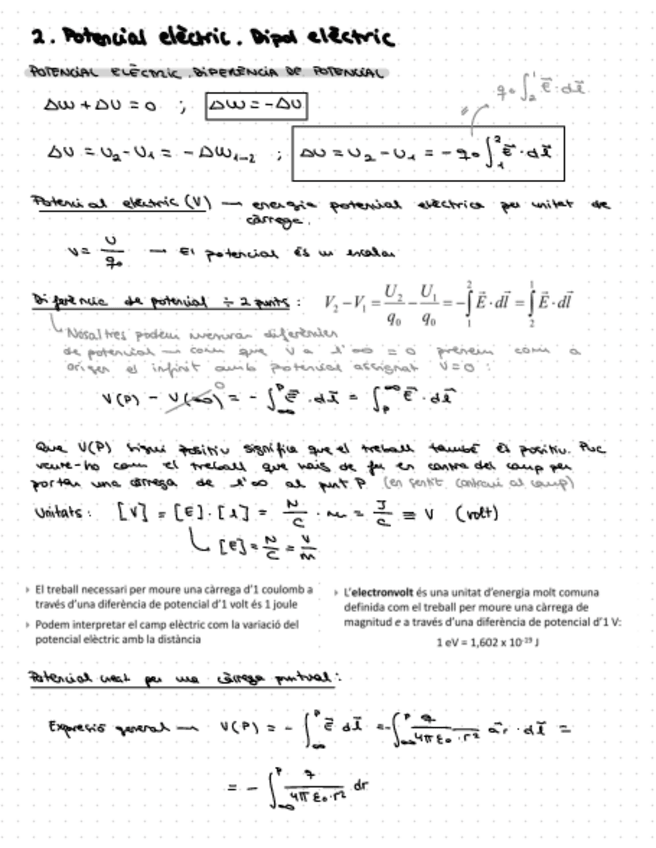 2. Potencial elèctric. Dipol elèctric
POTENCIAL ELÈCTRIC. DIFERÈNCIA DE POTENCIAL
q₀∫₂¹ E⃗·dl⃗
ΔW + ΔU = 0 ; ΔW = -ΔU
ΔU = U₂ - U₁ = -ΔW₁₋₂ ; ΔU = U₂ - U₁ = -q₀∫₁² E⃗·dl⃗
Potencial elèctric (V) — energia potencial elèctrica per unitat de
càrrega.
V = U/q₀ — El potencial és un escalar
Diferència de potencial ÷ 2 punts: V₂ - V₁ = U₂/q₀ - U₁/q₀ = -∫₁² E⃗·dl⃗ = ∫₂¹ E⃗·dl⃗
Nosaltres podem mesurar diferències
de potencial — com que V a l'∞ = 0 prenem com a
origen el infinit amb potencial assignat V=0:
V(P) - V(∞) = -∫∞ᴾ E⃗·dl⃗ = ∫ₚ∞ E⃗·dl⃗
0
Que V(P) sigui positiu significa que el treball també és positiu. Puc
veure-ho com el treball que haig de fer en contra del camp per
portar una càrrega de l'∞ al punt P (en sentit contrari al camp)
Unitats: [V] = [E]·[l] = N/C · m = J/C ≡ V (volt)
[E] = N/C = V/m
› El treball necessari per moure una càrrega d'1 coulomb a
través d'una diferència de potencial d'1 volt és 1 joule
› Podem interpretar el camp elèctric com la variació del
potencial elèctric amb la distància
› L'electronvolt és una unitat d'energia molt comuna
definida com el treball per moure una càrrega de
magnitud e a través d'una diferència de potencial d'1 V:
1 eV = 1,602 x 10⁻¹⁹ J
Potencial creat per una càrrega puntual:
Expresió general — V(P) = -∫∞ᴾ E⃗ dl⃗ = -∫∞ᴾ q/4πε₀·r² a⃗r · dl⃗ =
= -∫∞ᴾ q/4πε₀·r² dr